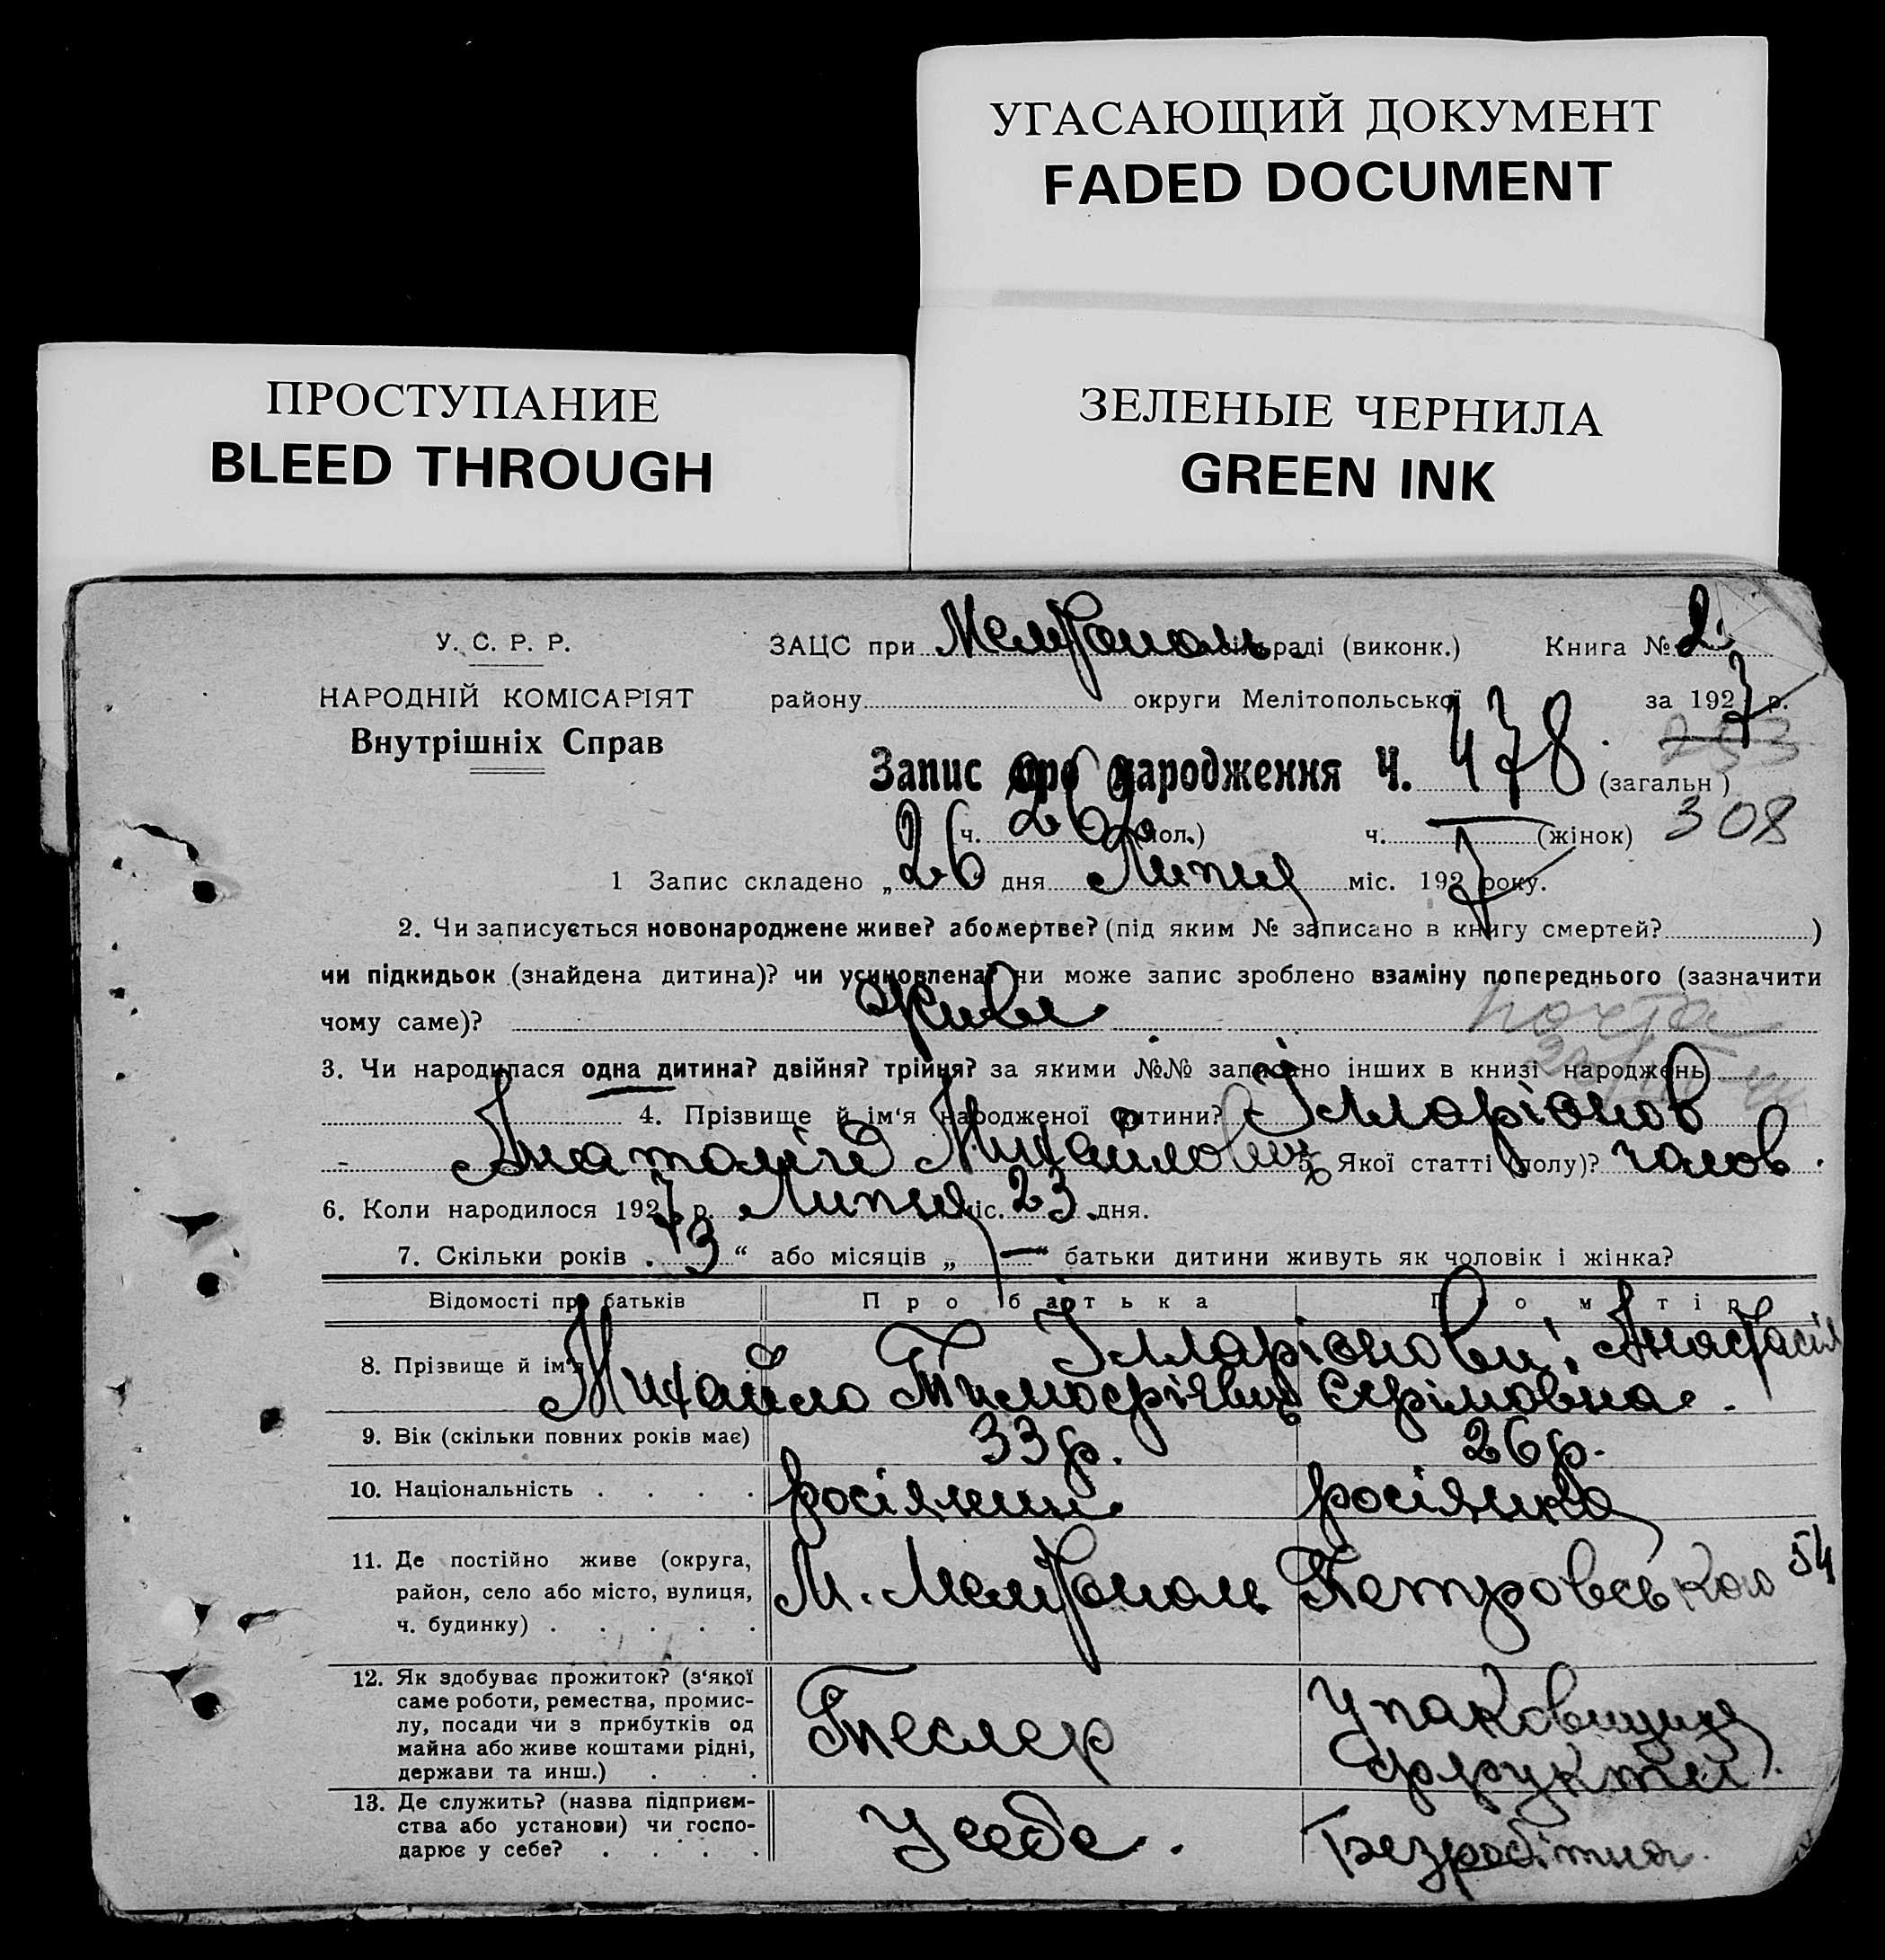 УГАСАЮЩИЙ ДОКУМЕНТ
FADED DOCUMENT
ПРОСТУПАНИЕ
BLEED THROUGH
ЗЕЛЕНЫЕ ЧЕРНИЛА
GREEN INK
У. С. Р. Р.
НАРОДНІЙ КОМІСАРІЯТ
Внутрішніх Справ
ЗАЦС при Мелітополь раді (виконк.) Книга № 2
району округи Мелітопольської за 1927 р.
Запис про народження Ч. 478. (загальн) 253
ч. 262 (пол.) ч. — (жінок) 308
1 Запис складено „26 дня Липня міс. 1927 року.
2. Чи записується новонароджене живе? або мертве? (під яким № записано в книгу смертей? )
чи підкидьок (знайдена дитина)? чи усиновлена? чи може запис зроблено взаміну попереднього (зазначити
чому саме)? Живе почта
3. Чи народилася одна дитина? двійня? трійня? за якими №№ записано інших в книзі народжень
4. Прізвище й ім'я народженої дитини? Ілларіонов
Анатолій Михайлович 5. Якої статті (полу)? чолов.
6. Коли народилося 1927 р. Липня міс. 23 дня.
7. Скільки років „3“ або місяців „—“ батьки дитини живуть як чоловік і жінка?
Відомості про батьків Про батька Про матір
8. Прізвище й ім'я Ілларіонови: Анастасія
Михайло Тимофіявич Єфімовна.
9. Вік (скільки повних років має) 33 р. 26 р.
10. Національність . . . . росіянин росіянка
11. Де постійно живе (округа,
район, село або місто, вулиця,
ч. будинку) . . . . . М. Мелітополь Петровською 54
12. Як здобуває прожиток? (з'якої
саме роботи, ремества, промис-
лу, посади чи з прибутків од
майна або живе коштами рідні,
держави та инш.) . . . Теслер Упаковщиця
фрукти
13. Де служить? (назва підприєм-
ства або установи) чи госпо-
дарює у себе? . . . . У себе. Безробітня.